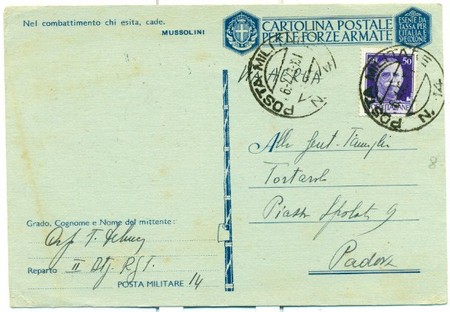 Nel combattimento chi esita, cade.
MUSSOLINI
CARTOLINA POSTALE
PER LE FORZE ARMATE
ESENTE DA
TASSA PER
L'ITALIA E
SPEDIZIONE
VIA AEREA
POSTA MILITARE
N. 14
50
POSTA MILITARE
N. 14
Alla Gent. Famiglia
Tortarolo
Piazza Spalato 9
Padova
8
Grado, Cognome e Nome del mittente:
T.
Reparto II
POSTA MILITARE 14